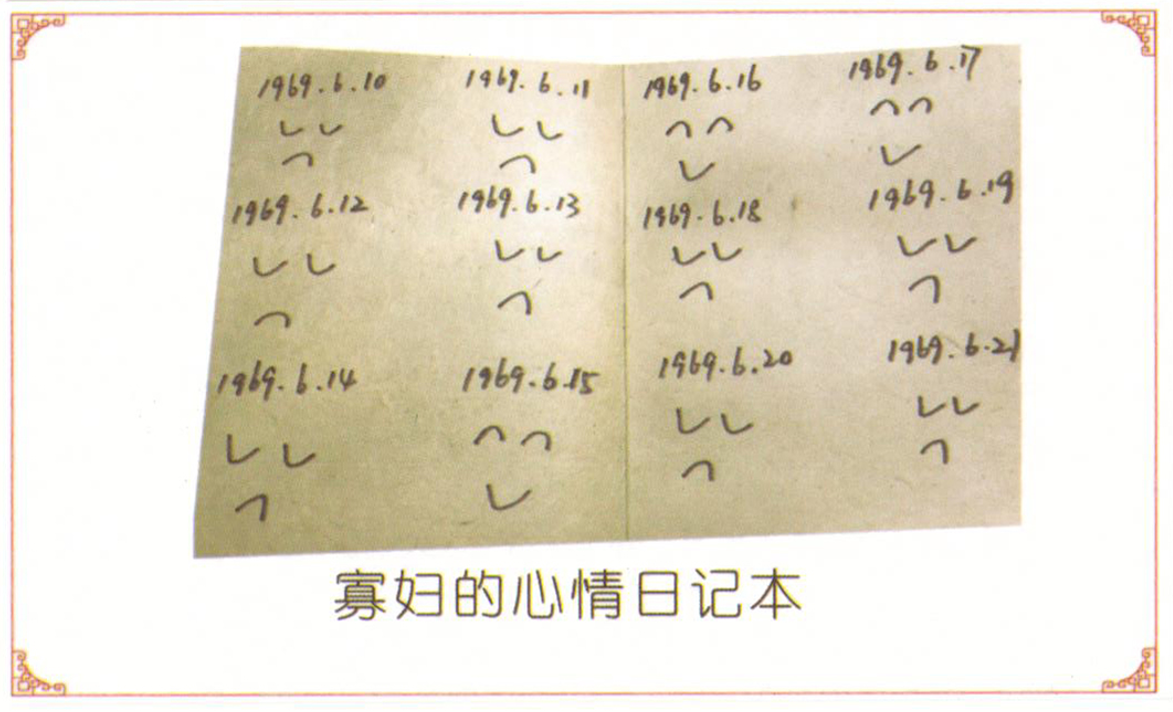 1969.6.10
1969.6.11
1969.6.12
1969.6.13
1969.6.14
1969.6.15
1969.6.16
1969.6.17
1969.6.18
1969.6.19
1969.6.20
1969.6.21
寡妇的心情日记本